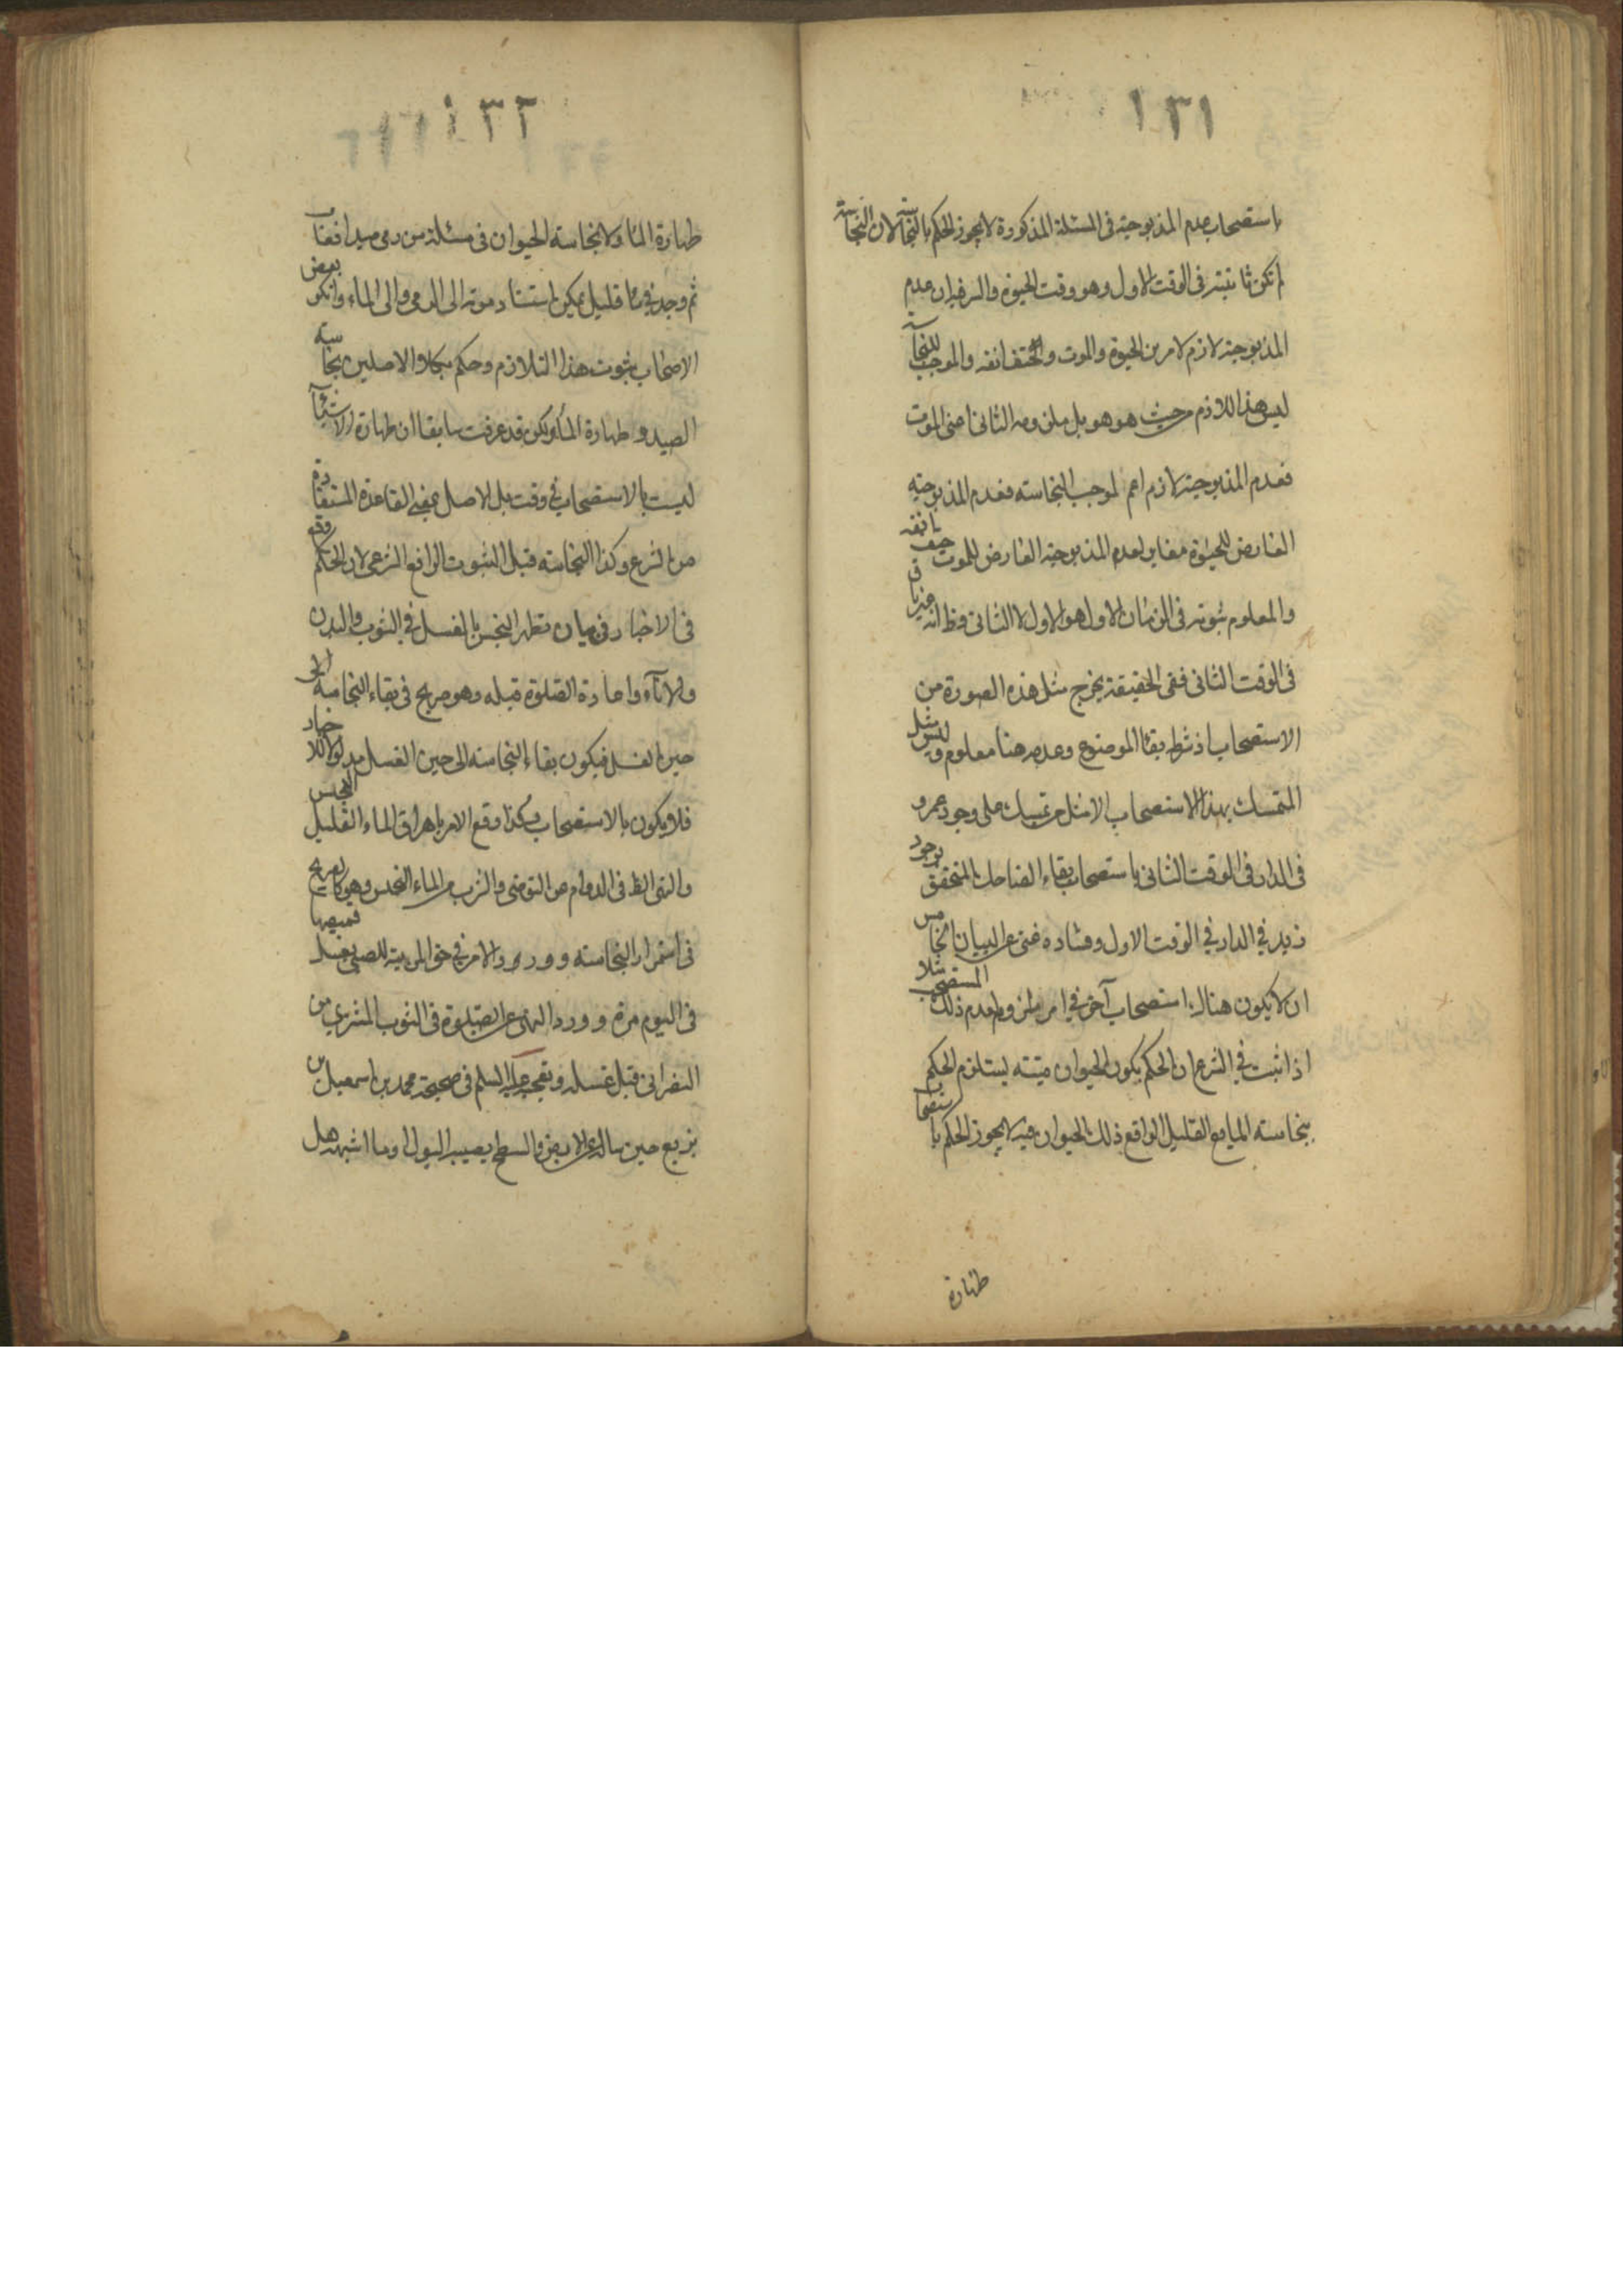 ١٣١
باستصحاب عدم المذبوحية في المسئلة المذكورة لا يجوز الحكم بالنجاسة لان النجاسة
لم تكن ثابتة في الوقت الاول وهو وقت الحيوة والسر فيه ان عدم
المذبوحية لازم لامرين الحيوة والموت حتف انفه والموجب للنجاسة
ليس هذا اللازم من حيث هو هو بل ملزومه الثاني اعني الموت
فعدم المذبوحية لازم اعم لموجب النجاسته فعدم المذبوحية
العارض للحيوة مغاير لعدم المذبوحية العارض للموت حتف انفه
والمعلوم ثبوته في الزمان الاول هو الاول لا الثاني وظ انه غير باق
في الوقت الثاني ففي الحقيقة يخرج مثل هذه الصورة من
الاستصحاب اذ شرطه بقاء الموضوع وعدمه هنا معلوم وليس مثل
المتمسك بهذا الاستصحاب الا مثل من تمسك على وجود عمرو
في الدار في الوقت الثاني باستصحاب بقاء الضاحك المتحقق بوجود
زيد في الدار في الوقت الاول وفساده غني عن البيان الخامس
ان لا يكون هناك استصحاب آخر في امر ملزوم لعدم ذلك المستصحب مثلا
اذا ثبت في الشرع ان الحكم بكون الحيوان ميتته يستلزم الحكم
بنجاسته المايع القليل الواقع ذلك الحيوان فيه لا يجوز الحكم باستصحاب
طهارة
١٣٢
طهارة الماء ولا نجاسته الحيوان في مسئلة من رمى صيدا فغاب
ثم وجد في ماء قليل يمكن استناد موته الى الرمي والى الماء وانكر بعض
الاصحاب ثبوت هذا التلازم وحكم بكلا الاصلين نجاسة
الصيد وطهارة الماء ولكن قد عرفت سابقا ان طهارة الاشياء
ليست بالاستصحاب في وقت بل الاصل بمعنى القاعدة المستفادة
من الشرع وكذا النجاسته قبل الثبوت الرافع الشرعي لان الحكم وقع
في الاخبار في بيان تطهر النجس بالغسل في الثوب والبدن
والاناء واعادة الصلوة قبله وهو صريح في بقاء النجاسة الى
حين الغسل فيكون بقاء النجاسته الى حين الغسل مدلولا للاخبار
فلا يكون بالاستصحاب وكذا وقع الامر باهراق الماء القليل النجس
والنهي الظ في الدوام عن التوضي والشرب من الماء النجس وهو كالصريح
في استمرار النجاسته وورود الامر في حق المربية للصبي بغسل قميصها
في اليوم مرة وورد النهي عن الصلوة في الثوب المشتري من
النصراني قبل غسله وتعجبه عليه السلم في صحيحة محمد بن اسمعيل بن
بزيع حين ساله عن الارض والسطح يصيبه البول او ما اشبهه هل